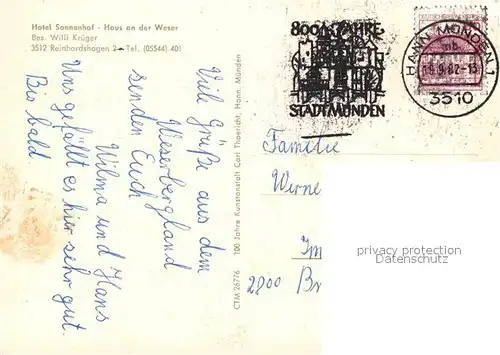 Hotel Sonnenhof - Haus an der Weser
Bes. Willi Krüger
3512 Reinhardshagen 2 - Tel. (05544) 401
Viele Grüße aus dem
Weserbergland
senden Euch
Wilma und Hans
Uns gefällt es hier sehr gut.
Bis bald
CTM 26776 100 Jahre Kunstanstalt Carl Thoericht, Hann. Münden
800 JAHRE
STADT MÜNDEN
HANN. MÜNDEN 1
mb
19.9.82-15
3510
Familie
Werne
Im
2800 Br
privacy protection
Datenschutz